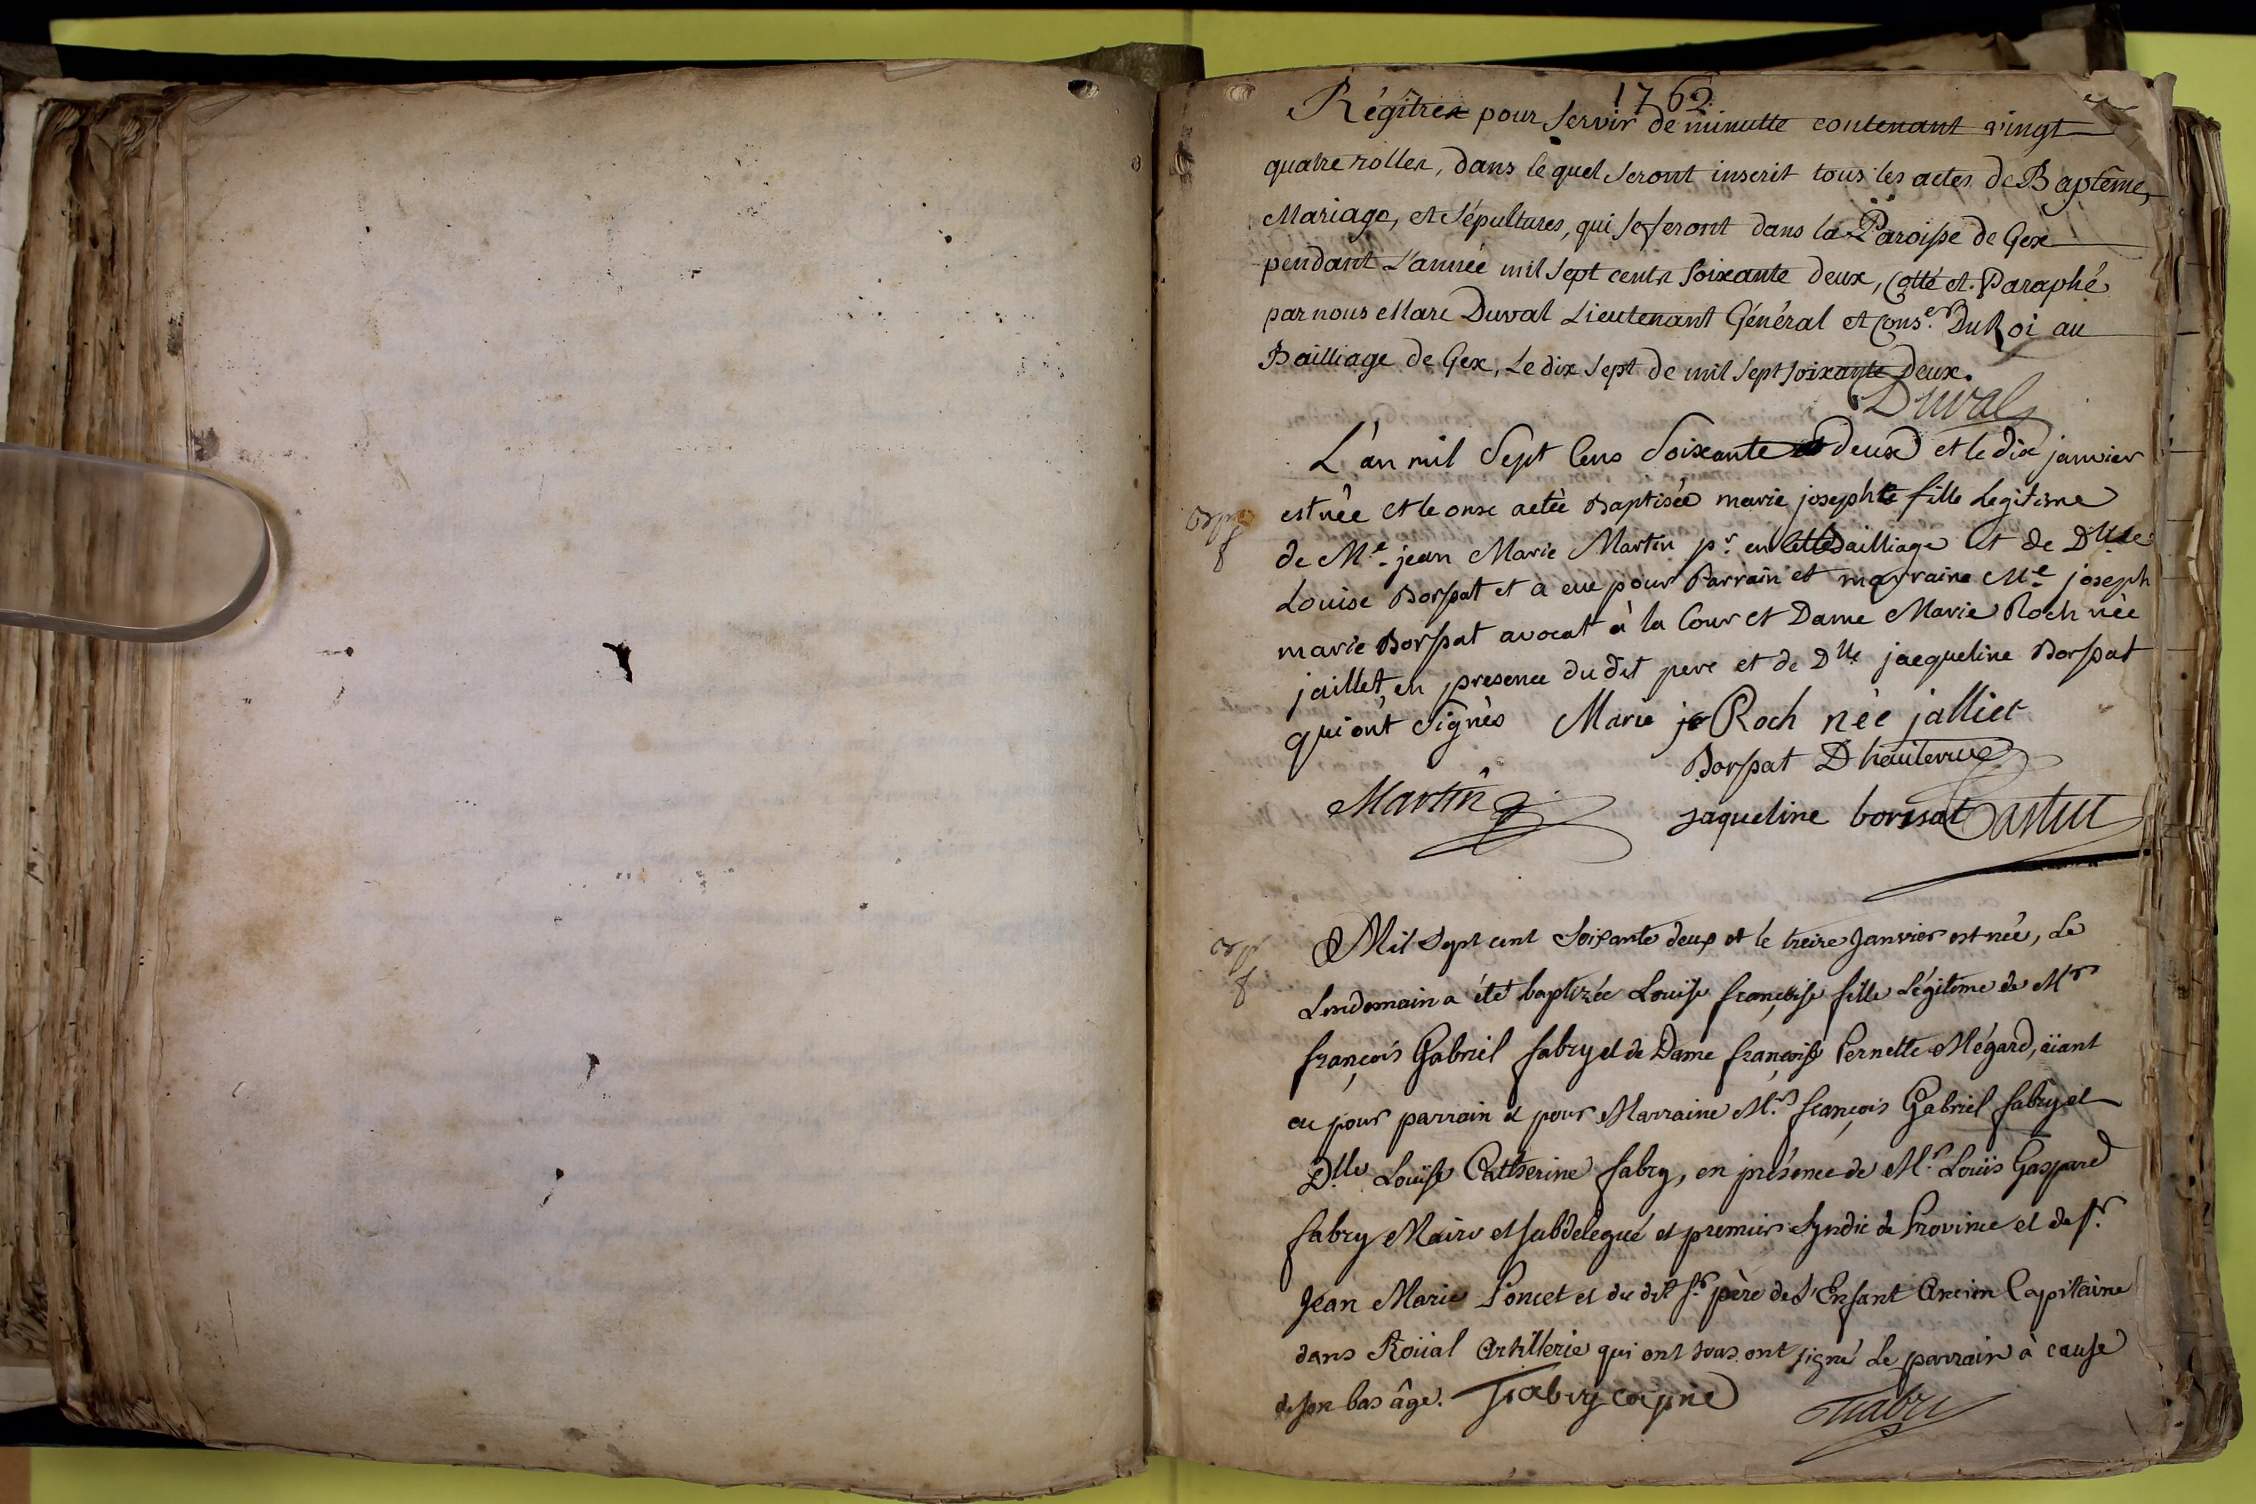 1762
Régitres pour servir de minutte contenant vingt
quatre rolles, dans lequel seront inserit tous les actes de Baptême,
Mariage, et sépultures, qui se feront dans la Paroisse de Gex
pendant l'année mil sept cents soixante deux, Cotté et Paraphé
par nous Marc Duval Lieutenant Général et Conser. Du Roi au
Bailliage de Gex, Le dix sept de mil sept soixante deux.
Duval
L'an mil Sept Cens Soixante deux et le dix janvier
est née et le onse aetée Baptisée marie josephte fille Legitime
de Me. jean Marie Martin pr. en cette Bailliage et de Dlle
Louise Borssat et a eue pour Parrain et marraine Me joseph
marie Borssat avocat à la Cour et Dame Marie Roch née
jaillet, en presence du dit pere et de Dlle jacqueline Borssat
qui ont signés Marie je Roch neè jalliet
Borssat Dhauterive
Martin
Jaqueline borssat Castin
Mil Sept cent soixante deux et le treize Janvier est née, Le
Lendemain a été baptizée Louïse françoise fille Légitime de Mr
françois Gabriel fabry et de Dame françoise Pernette Mégard, aïant
eu pour parrain et pour Marraine Mr. françois Gabriel fabry et
Dlle Louïse Catherine fabry, en présence de Mr. Louïs Gaspard
fabry Maire et subdelegué et premier Syndic de Province et de sr.
Jean Marie Poncet et du dit sr. père de l'Enfant Ancien Capitaine
dans Roïial Artillerie qui ont tous ont signé Le parrain à cause
de son bas âge. fabry
fabry